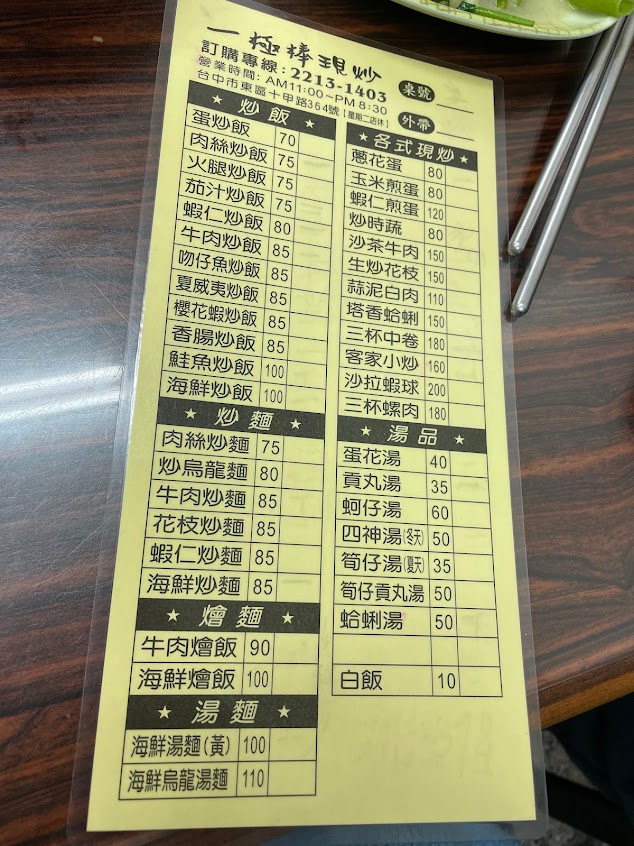 一極棒現炒
訂購專線：2213-1403
營業時間：AM11:00~PM 8:30
台中市東區十甲路364號【星期二店休】
桌號
外帶
★ 炒飯 ★
蛋炒飯 70
肉絲炒飯 75
火腿炒飯 75
茄汁炒飯 75
蝦仁炒飯 80
牛肉炒飯 85
吻仔魚炒飯 85
夏威夷炒飯 85
櫻花蝦炒飯 85
香腸炒飯 85
鮭魚炒飯 100
海鮮炒飯 100
★ 炒麵 ★
肉絲炒麵 75
炒烏龍麵 80
牛肉炒麵 85
花枝炒麵 85
蝦仁炒麵 85
海鮮炒麵 85
★ 燴麵 ★
牛肉燴飯 90
海鮮燴飯 100
★ 湯麵 ★
海鮮湯麵(黃) 100
海鮮烏龍湯麵 110
★ 各式現炒 ★
蔥花蛋 80
玉米煎蛋 80
蝦仁煎蛋 120
炒時蔬 80
沙茶牛肉 150
生炒花枝 150
蒜泥白肉 110
塔香蛤蜊 150
三杯中卷 180
客家小炒 160
沙拉蝦球 200
三杯螺肉 180
★ 湯品 ★
蛋花湯 40
貢丸湯 35
蚵仔湯 60
四神湯(冬天) 50
筍仔湯(夏天) 35
筍仔貢丸湯 50
蛤蜊湯 50
白飯 10